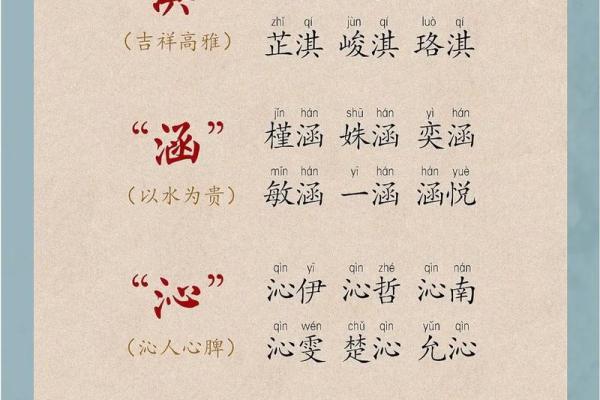 淇
zhǐ qí jùn qí luò qí
（吉祥高雅） 芷淇 峻淇 珞淇
jǐn hán shū hán yì hán
“涵” 槿涵 姝涵 奕涵
mǐn hán yī hán hán yuè
（以水为贵） 敏涵 一涵 涵悦
qìn yī qìn zhé qìn nán
“沁” 沁伊 沁哲 沁南
qìn wén chǔ qìn yǔn qìn
（沁人心脾） 沁雯 楚沁 允沁